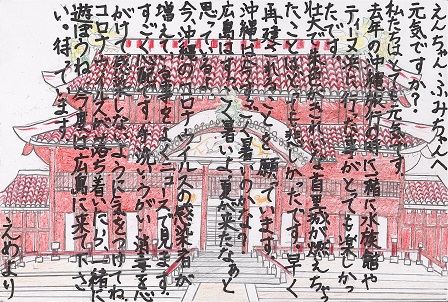 えんちゃん、ふみちゃんへ
元気ですか？
私たちはとても元気です。
去年の沖縄旅行の時に一緒に水族館や
ティー浜に行った事がとても楽しかっ
たです。
壮大で朱色がきれいな首里城が燃えちゃっ
たことはとても悲しかったです。早く
再建されることを願っています。
沖縄はもうすごく暑いのかな？
広島はすごく暑いよ。夏が来たなぁと
思ってるよ。
今、沖縄のコロナウイルスの感染者が
増えている事をよくニュースで見ます。
すごく心配です。手洗い、うがい、消毒を心
がけて感染しないように気をつけてね。
コロナウイルスが落ち着いたら、一緒に
遊ぼうね。今度は広島に来て下さ
い。待ってます！
えめより